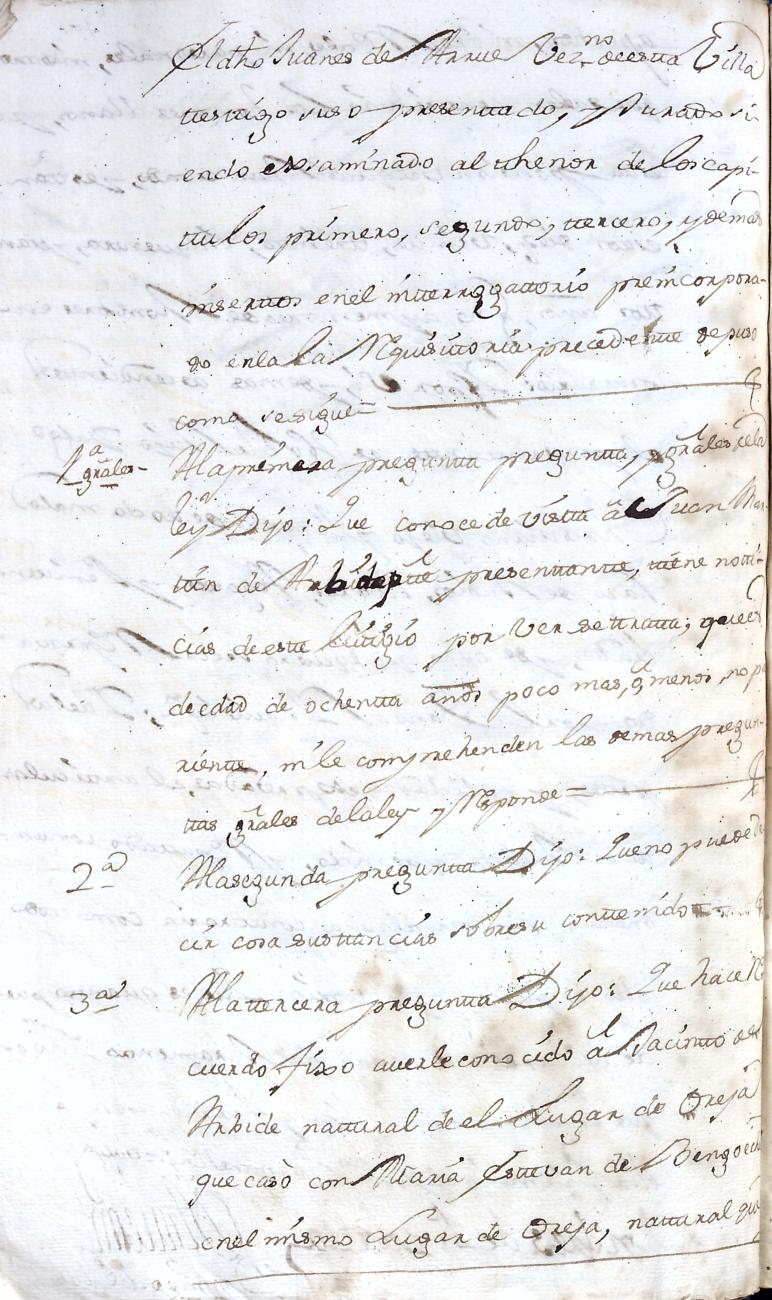 El dho Juanes de Arrue Vez.no de esta Villa
testigo suso presentado, y Jurado si-
endo exsaminado al thenor de los capi-
tulos primero, segundo, tercero, y demas
insertos en el interrogattorio preincorpora-
do en la Rquisitoria precedente depuso
como se sigue =
1.a grãles - A la primera pregunta pregunta, y grãles de la
ley Dijo: Que conoce de vista a Juan Mar-
tin de Arbide presentante, tiene noti-
cias de este litigio por ver se tratta, que es
de edad de ochenta años poco mas, o menos, no pa
riente, ni le comprehenden las demas pregun-
tas grãles de la ley y Responde =
2.a A la segunda pregunta Dijo: Que no puede de
cir cosa sustancias sobre su contenido
3.a A la tercera pregunta Dijo: Que hace Re
cuerdo fixo averle conocido a Jacinto de
Arbide natural de el Lugar de Oreja
que casò con Maria Estevan de Bengoech
en el mismo Lugar de Oreja, natural que